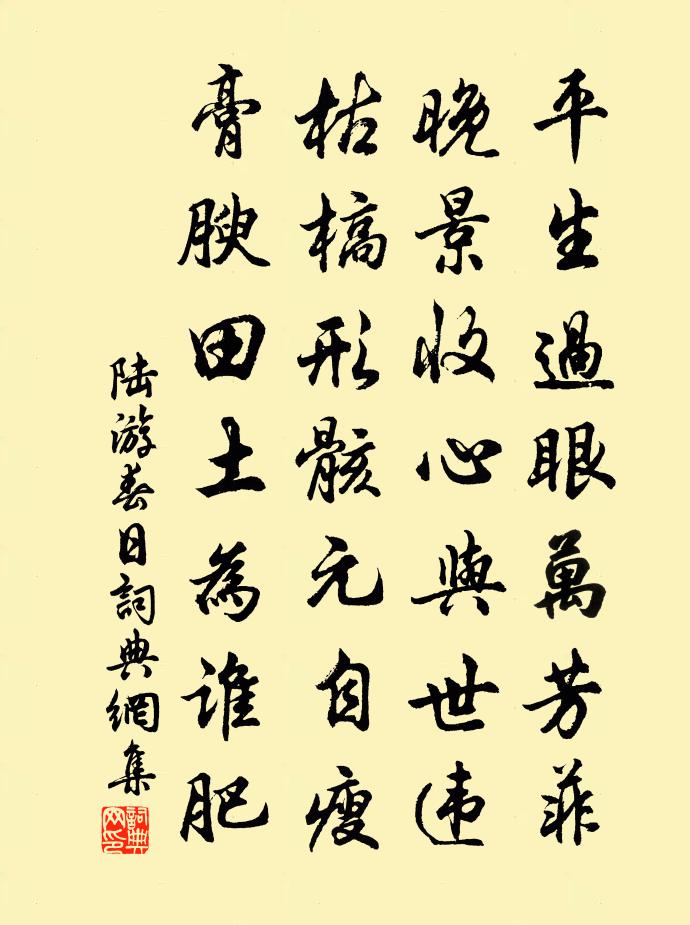 平生過眼萬芳菲
晚景收心與世违
枯槁形骸元自瘦
膏腴田土為誰肥
陆游春日詞典網集
詞典
网印